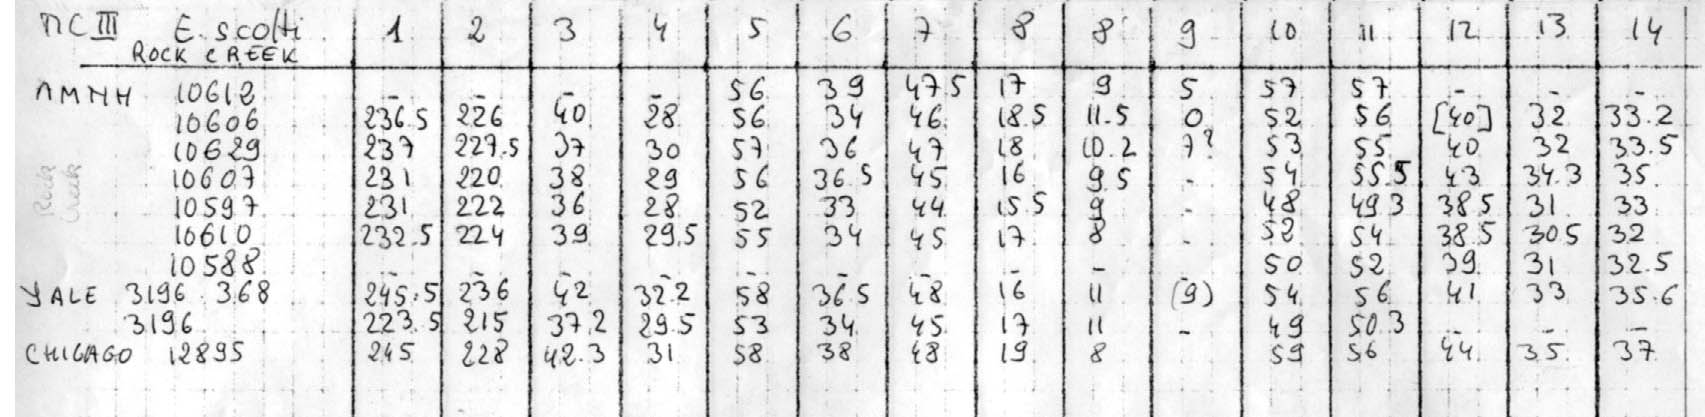 MC III E. scotti 1 2 3 4 5 6 7 8 8' 9 10 11 12 13 14
ROCK CREEK
AMNH 10612 - - - - 56 39 47.5 17 9 5 57 57 - - -
10606 236.5 226 40 28 56 34 46 18.5 11.5 0 52 56 [40] 32 33.2
10629 237 227.5 37 30 57 36 47 18 10.2 7? 53 55 40 32 33.5
Rock Creek
10607 231 220 38 29 56 36.5 45 16 9.5 - 54 55.5 43 34.3 35
10597 231 222 36 28 52 33 44 15.5 9 - 48 49.3 38.5 31 33
10610 232.5 224 39 29.5 55 34 45 17 8 - 52 54 38.5 30.5 32
10588 - - - - - - - - - - 50 52 39 31 32.5
YALE 3196 . 368 245.5 236 42 32.2 58 36.5 48 16 11 (9) 54 56 41 33 35.6
3196 223.5 215 37.2 29.5 53 34 45 17 11 - 49 50.3 - - -
CHICAGO 12895 245 228 42.3 31 58 38 48 19 8 59 56 44 35 37